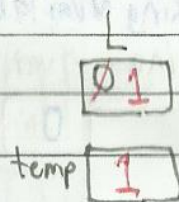 L
0 1
temp 1